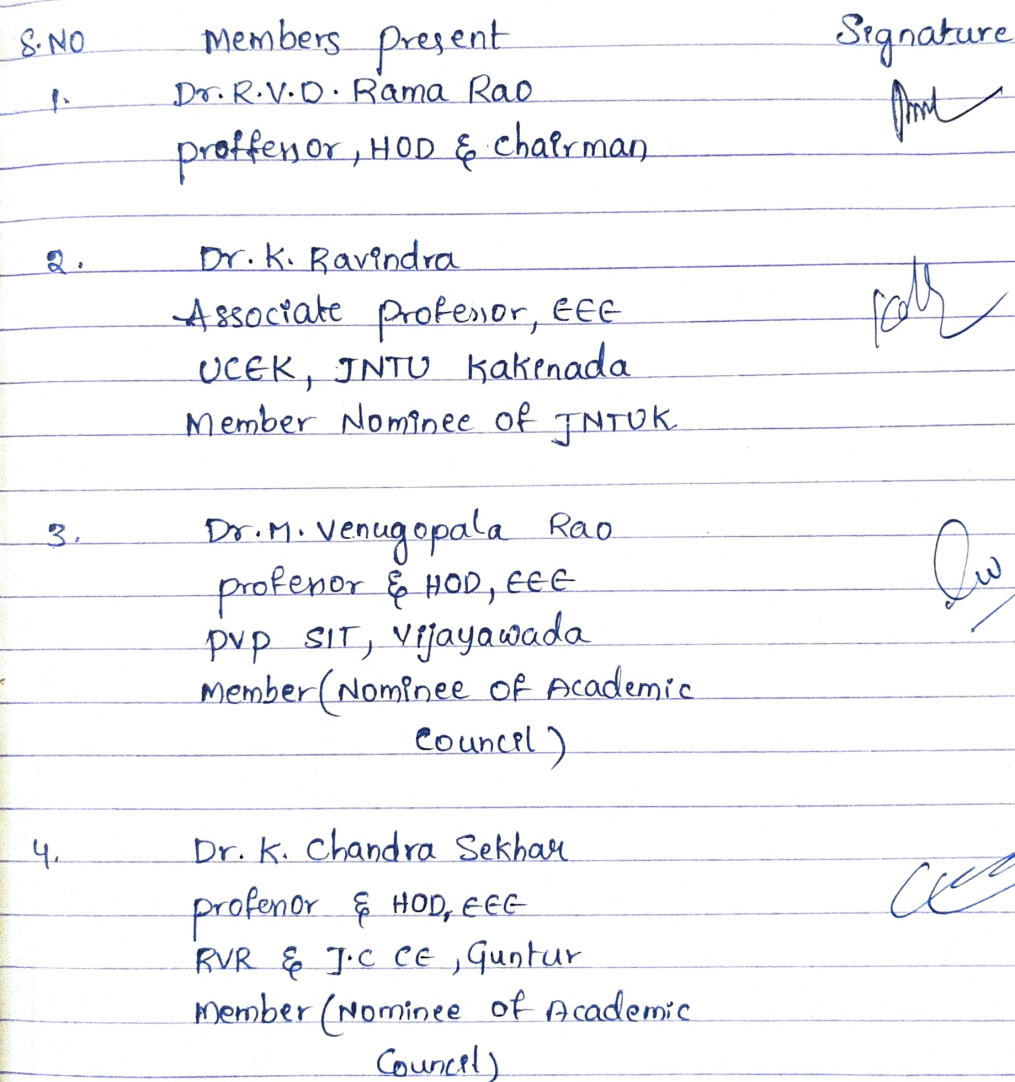 S.NO Members present Signature
1. Dr. R.V.D. Rama Rao
proffessor, HOD & chairman
2. Dr. K. Ravindra
Associate professor, EEE
UCEK, JNTU Kakinada
Member Nominee of JNTUK
3. Dr. M. Venugopala Rao
professor & HOD, EEE
PVP SIT, Vijayawada
Member (Nominee of Academic
Council)
4. Dr. K. Chandra Sekhar
professor & HOD, EEE
RVR & J.C CE, Guntur
Member (Nominee of Academic
Council)